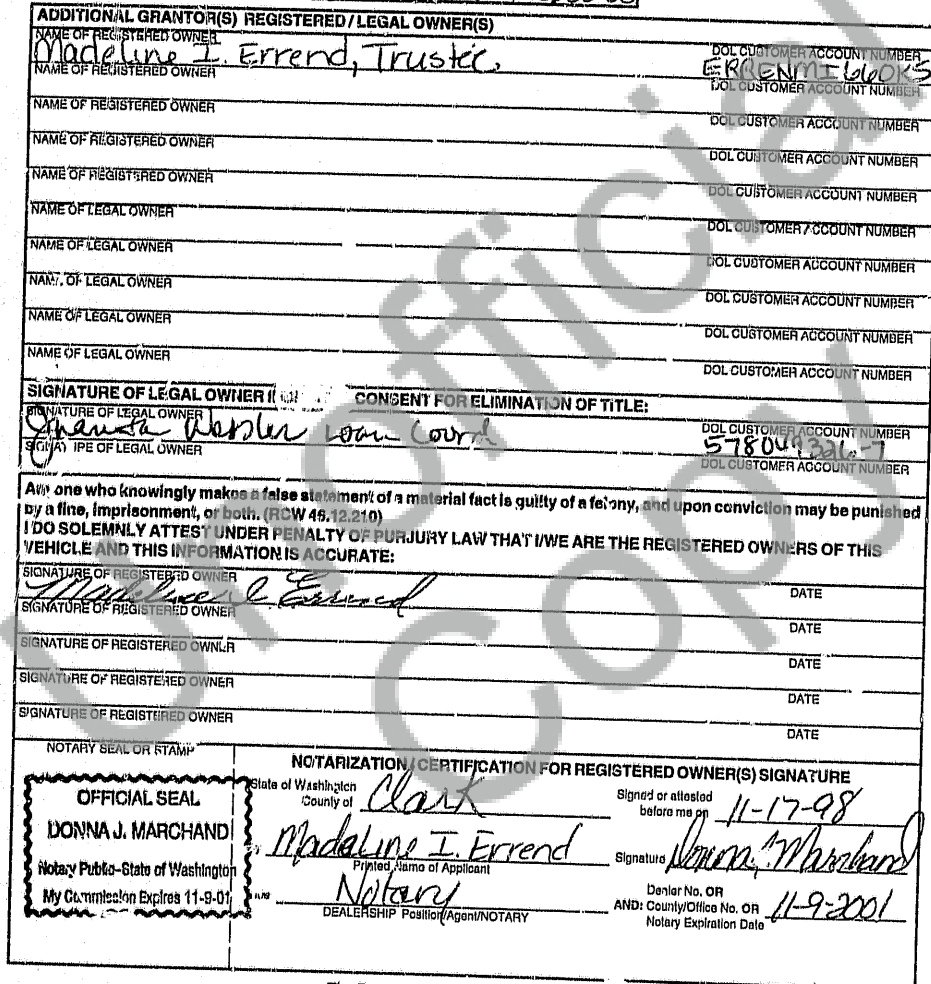 ADDITIONAL GRANTOR(S) REGISTERED/LEGAL OWNER(S)
NAME OF REGISTERED OWNER DOL CUSTOMER ACCOUNT NUMBER
Madeline I. Errend, Trustee, ERRENMI660K5
NAME OF REGISTERED OWNER DOL CUSTOMER ACCOUNT NUMBER
NAME OF REGISTERED OWNER DOL CUSTOMER ACCOUNT NUMBER
NAME OF REGISTERED OWNER DOL CUSTOMER ACCOUNT NUMBER
NAME OF REGISTERED OWNER DOL CUSTOMER ACCOUNT NUMBER
NAME OF LEGAL OWNER DOL CUSTOMER ACCOUNT NUMBER
NAME OF LEGAL OWNER DOL CUSTOMER ACCOUNT NUMBER
NAME OF LEGAL OWNER DOL CUSTOMER ACCOUNT NUMBER
NAME OF LEGAL OWNER DOL CUSTOMER ACCOUNT NUMBER
NAME OF LEGAL OWNER DOL CUSTOMER ACCOUNT NUMBER
SIGNATURE OF LEGAL OWNER CONSENT FOR ELIMINATION OF TITLE:
SIGNATURE OF LEGAL OWNER DOL CUSTOMER ACCOUNT NUMBER
Wessler Loan Coord
SIGNATURE OF LEGAL OWNER DOL CUSTOMER ACCOUNT NUMBER
Any one who knowingly makes a false statement of a material fact is guilty of a felony, and upon conviction may be punished
by a fine, imprisonment, or both. (RCW 46.12.210)
I DO SOLEMNLY ATTEST UNDER PENALTY OF PURJURY LAW THAT I/WE ARE THE REGISTERED OWNERS OF THIS
VEHICLE AND THIS INFORMATION IS ACCURATE:
SIGNATURE OF REGISTERED OWNER DATE
Madeline I Errend
SIGNATURE OF REGISTERED OWNER DATE
SIGNATURE OF REGISTERED OWNER DATE
SIGNATURE OF REGISTERED OWNER DATE
SIGNATURE OF REGISTERED OWNER DATE
NOTARY SEAL OR STAMP
OFFICIAL SEAL
DONNA J. MARCHAND
Notary Public-State of Washington
My Commission Expires 11-9-01
NOTARIZATION/CERTIFICATION FOR REGISTERED OWNER(S) SIGNATURE
State of Washington
County of Clark Signed or attested before me on 11-17-98
Madeline I. Errend Signature Donna J Marchand
Printed Name of Applicant
Notary
DEALERSHIP Position/Agent/NOTARY
Dealer No. OR
AND: County/Office No. OR 11-9-2001
Notary Expiration Date
Unofficial
Copy